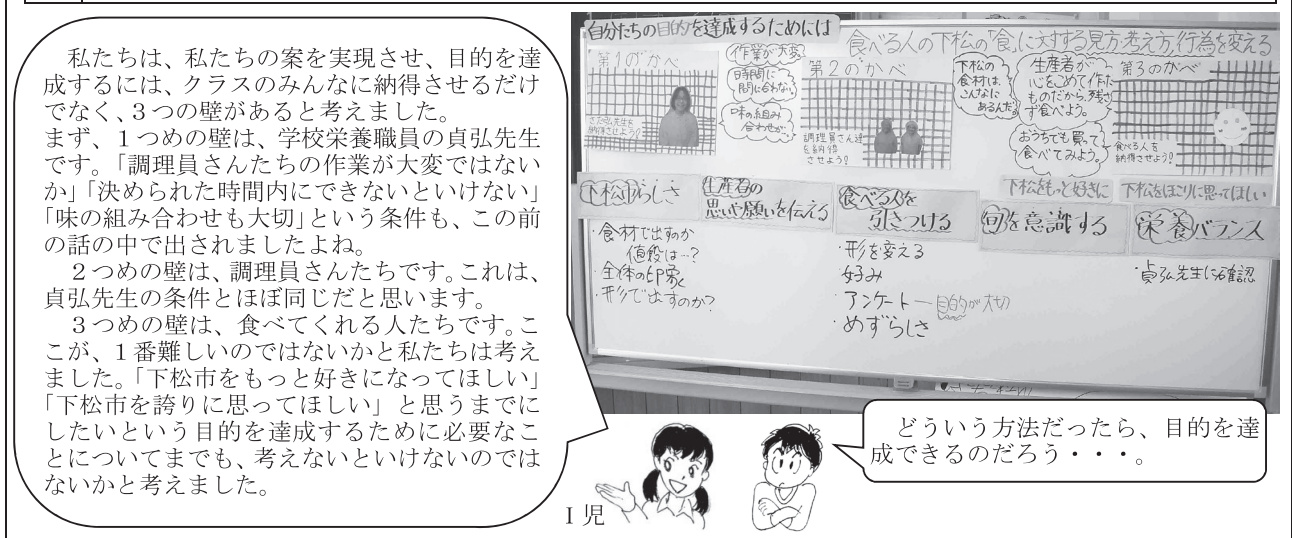 私たちは、私たちの案を実現させ、目的を達
成するには、クラスのみんなに納得させるだけ
でなく、３つの壁があると考えました。
まず、１つめの壁は、学校栄養職員の貞弘先生
です。「調理員さんたちの作業が大変ではない
か」「決められた時間内にできないといけない」
「味の組み合わせも大切」という条件も、この前
の話の中で出されましたよね。
２つめの壁は、調理員さんたちです。これは、
貞弘先生の条件とほぼ同じだと思います。
３つめの壁は、食べてくれる人たちです。こ
こが、１番難しいのではないかと私たちは考え
ました。「下松市をもっと好きになってほしい」
「下松市を誇りに思ってほしい」と思うまでに
したいという目的を達成するために必要なこ
とについてまでも、考えないといけないのでは
ないかと考えました。
自分たちの目的を達成するためには
食べる人の下松の「食」に対する見方・考え方、行為を変える
第１のかべ
貞弘先生を
納得させよう！
作業が大変
時間に
間に合わない
味の組み
合わせが
第２のかべ
調理員さん達
を納得
させよう！
下松の
食材は、
こんなに
あるんだ。
生産者が
心をこめて作た
ものだから、残さ
ず食べよう。
おうちでも買って
食べてみよう。
第３のかべ
食べる人を
納得させよう！
下松をもっと好きに
下松をほこりに思ってほしい
下松市らしさ
・食材で出すのか
値段は…？
・全体の印象
・形で出すのか？
生産者の
思いや願いを伝える
食べる人を
引きつける
・形を変える
・好み
・アンケート―目的が大切
・めずらしさ
旬を意識する
栄養バランス
・貞弘先生に確認
Ｉ児
どういう方法だったら、目的を達
成できるのだろう・・・。